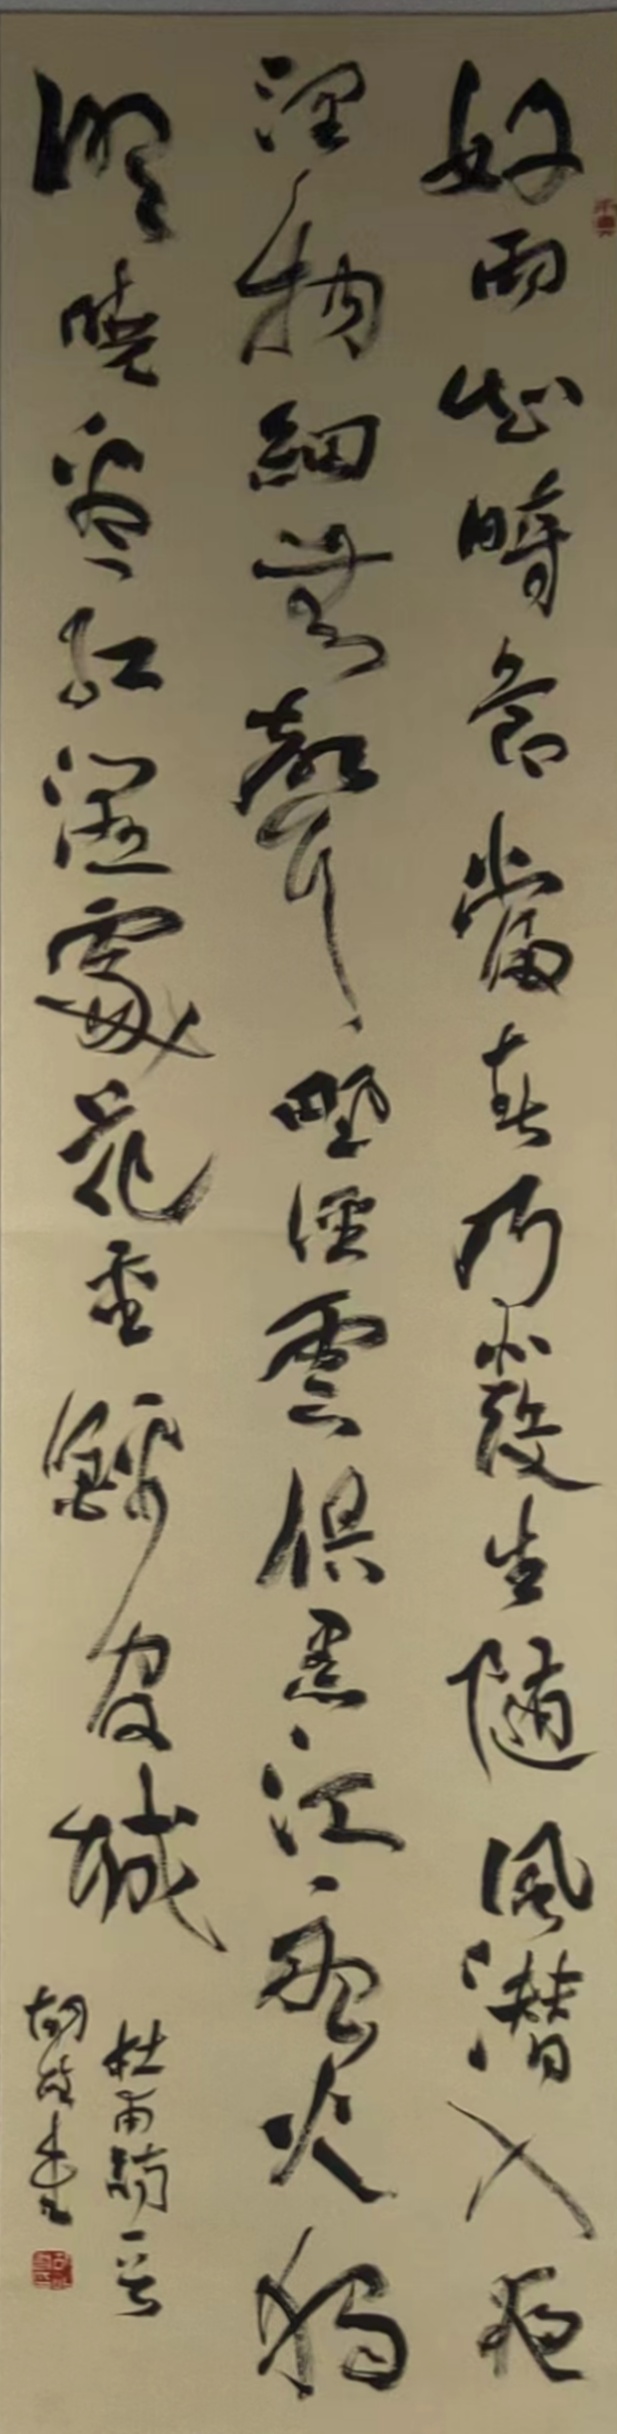 好雨知時節當春乃發生隨風潛入夜
潤物細無聲野徑雲俱黑江船火獨
明曉看紅濕處花重錦官城
杜甫詩一首
胡